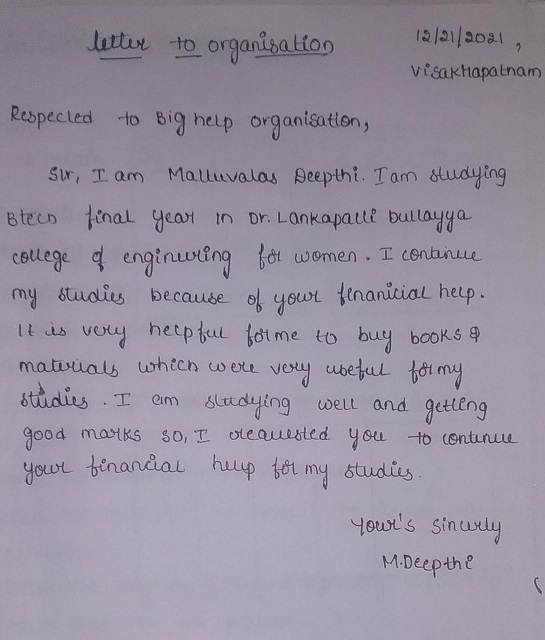 letter to organisation
12/21/2021,
Visakhapatnam
Respected to Big help organisation,
Sir, I am Malluvalas Deepthi. I am studying
Btech final year in Dr. Lankapalli bullayya
college of enginering for women. I continue
my studies because of your finanicial help.
It is very helpful for me to buy books &
materials which were very useful for my
studies. I am studying well and getting
good marks so, I requested you to continue
your financial help for my studies.
Your's sincerly
M.Deepthi